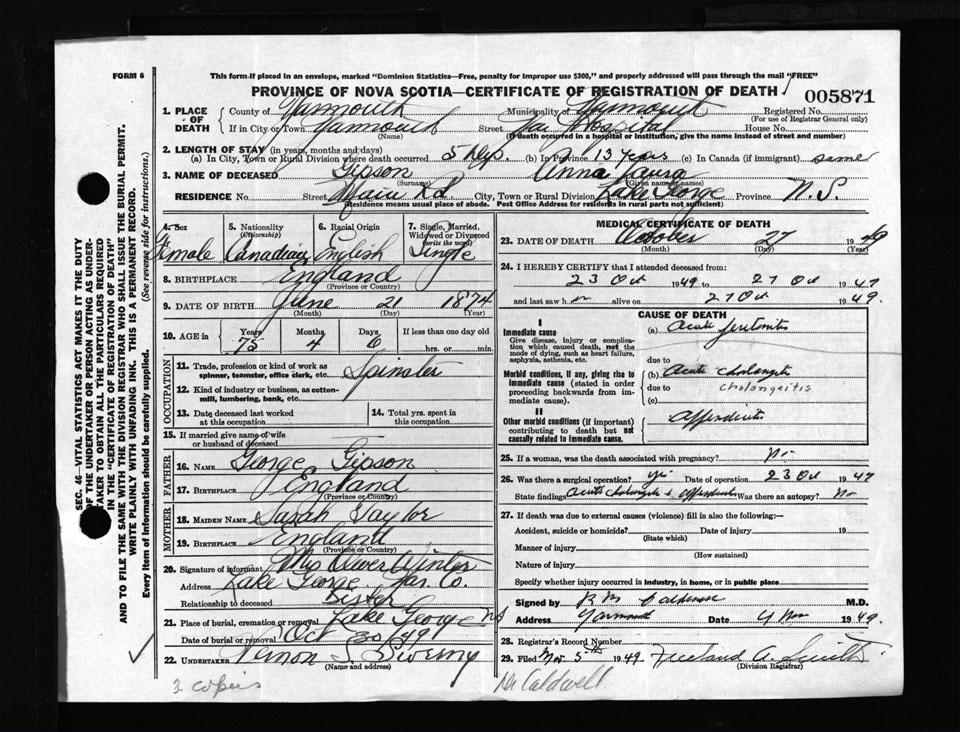 FORM 6
This form if placed in an envelope, marked "Dominion Statistics—Free, penalty for improper use $300," and properly addressed will pass through the mail "FREE"
PROVINCE OF NOVA SCOTIA—CERTIFICATE OF REGISTRATION OF DEATH
005871
1. PLACE OF DEATH County of Yarmouth Municipality of Yarmouth Registered No.
(For use of Registrar General only)
If in City or Town Yarmouth Street Yar Hospital House No.
(Name) (If death occurred in a hospital or institution, give the name instead of street and number)
2. LENGTH OF STAY (in years, months and days)
(a) In City, Town or Rural Division where death occurred 5 dys. (b) In Province 13 years (c) In Canada (if immigrant) same
3. NAME OF DECEASED Gipson Anna Laura
(Surname) (Given name or names)
RESIDENCE No. Street Main Rd City, Town or Rural Division Lake George Province N.S.
(Residence means usual place of abode. Post Office Address for residents in rural parts not sufficient)
4. Sex Female
5. Nationality (Citizenship) Canadian
6. Racial Origin English
7. Single, Married, Widowed or Divorced (write the word) Single
8. BIRTHPLACE England
(Province or Country)
9. DATE OF BIRTH June 21 1874
(Month) (Day) (Year)
10. AGE in Years 75 Months 4 Days 6 If less than one day old
hrs. or min.
OCCUPATION
11. Trade, profession or kind of work as spinner, teamster, office clerk, etc. Spinster
12. Kind of industry or business, as cotton-mill, lumbering, bank, etc.
13. Date deceased last worked at this occupation
14. Total yrs. spent in this occupation
15. If married give name of wife or husband of deceased
FATHER
16. NAME George Gipson
17. BIRTHPLACE England
(Province or Country)
MOTHER
18. MAIDEN NAME Sarah Taylor
19. BIRTHPLACE England
(Province or Country)
20. Signature of informant Mrs Oliver Winter
Address Lake George Yar. Co.
Relationship to deceased Sister
21. Place of burial, cremation or removal Lake George NS
Date of burial or removal Oct 30/49
22. UNDERTAKER Vernon S
(Name and address)
MEDICAL CERTIFICATE OF DEATH
23. DATE OF DEATH October 27 1949
(Month) (Day) (Year)
24. I HEREBY CERTIFY that I attended deceased from:
23 Oct 1949 to 27 Oct 1947
and last saw h alive on 27 Oct 1949.
CAUSE OF DEATH
I
Immediate cause
Give disease, injury or complication which caused death, not the mode of dying, such as heart failure, asphyxia, asthenia, etc.
(a) Acute peritonitis
due to
Morbid conditions, if any, giving rise to immediate cause (stated in order proceeding backwards from immediate cause).
(b) Acute cholangitis
due to cholangeitis
(c)
II
Other morbid conditions (if important) contributing to death but not causally related to immediate cause.
Appendicitis
25. If a woman, was the death associated with pregnancy? No
26. Was there a surgical operation? yes Date of operation 23 Oct 1947
State findings Acute cholangitis & Appendicitis Was there an autopsy? No
27. If death was due to external causes (violence) fill in also the following:—
Accident, suicide or homicide? Date of injury 19
(State which)
Manner of injury
(How sustained)
Nature of injury
Specify whether injury occurred in industry, in home, or in public place
Signed by R M Caldwell M.D.
Address Yarmouth Date 4 Nov 1949.
28. Registrar's Record Number
29. Filed Nov 5th 1949 Freeland A. Smith
(Division Registrar)
3 copies
Dr Caldwell
SEC. 46—VITAL STATISTICS ACT MAKES IT THE DUTY
OF THE UNDERTAKER OR PERSON ACTING AS UNDER-
TAKER TO OBTAIN ALL THE PARTICULARS REQUIRED
IN THE "CERTIFICATE OF REGISTRATION OF DEATH"
AND TO FILE THE SAME WITH THE DIVISION REGISTRAR WHO SHALL ISSUE THE BURIAL PERMIT.
WRITE PLAINLY WITH UNFADING INK. THIS IS A PERMANENT RECORD.
Every item of information should be carefully supplied. (See reverse side for instructions.)